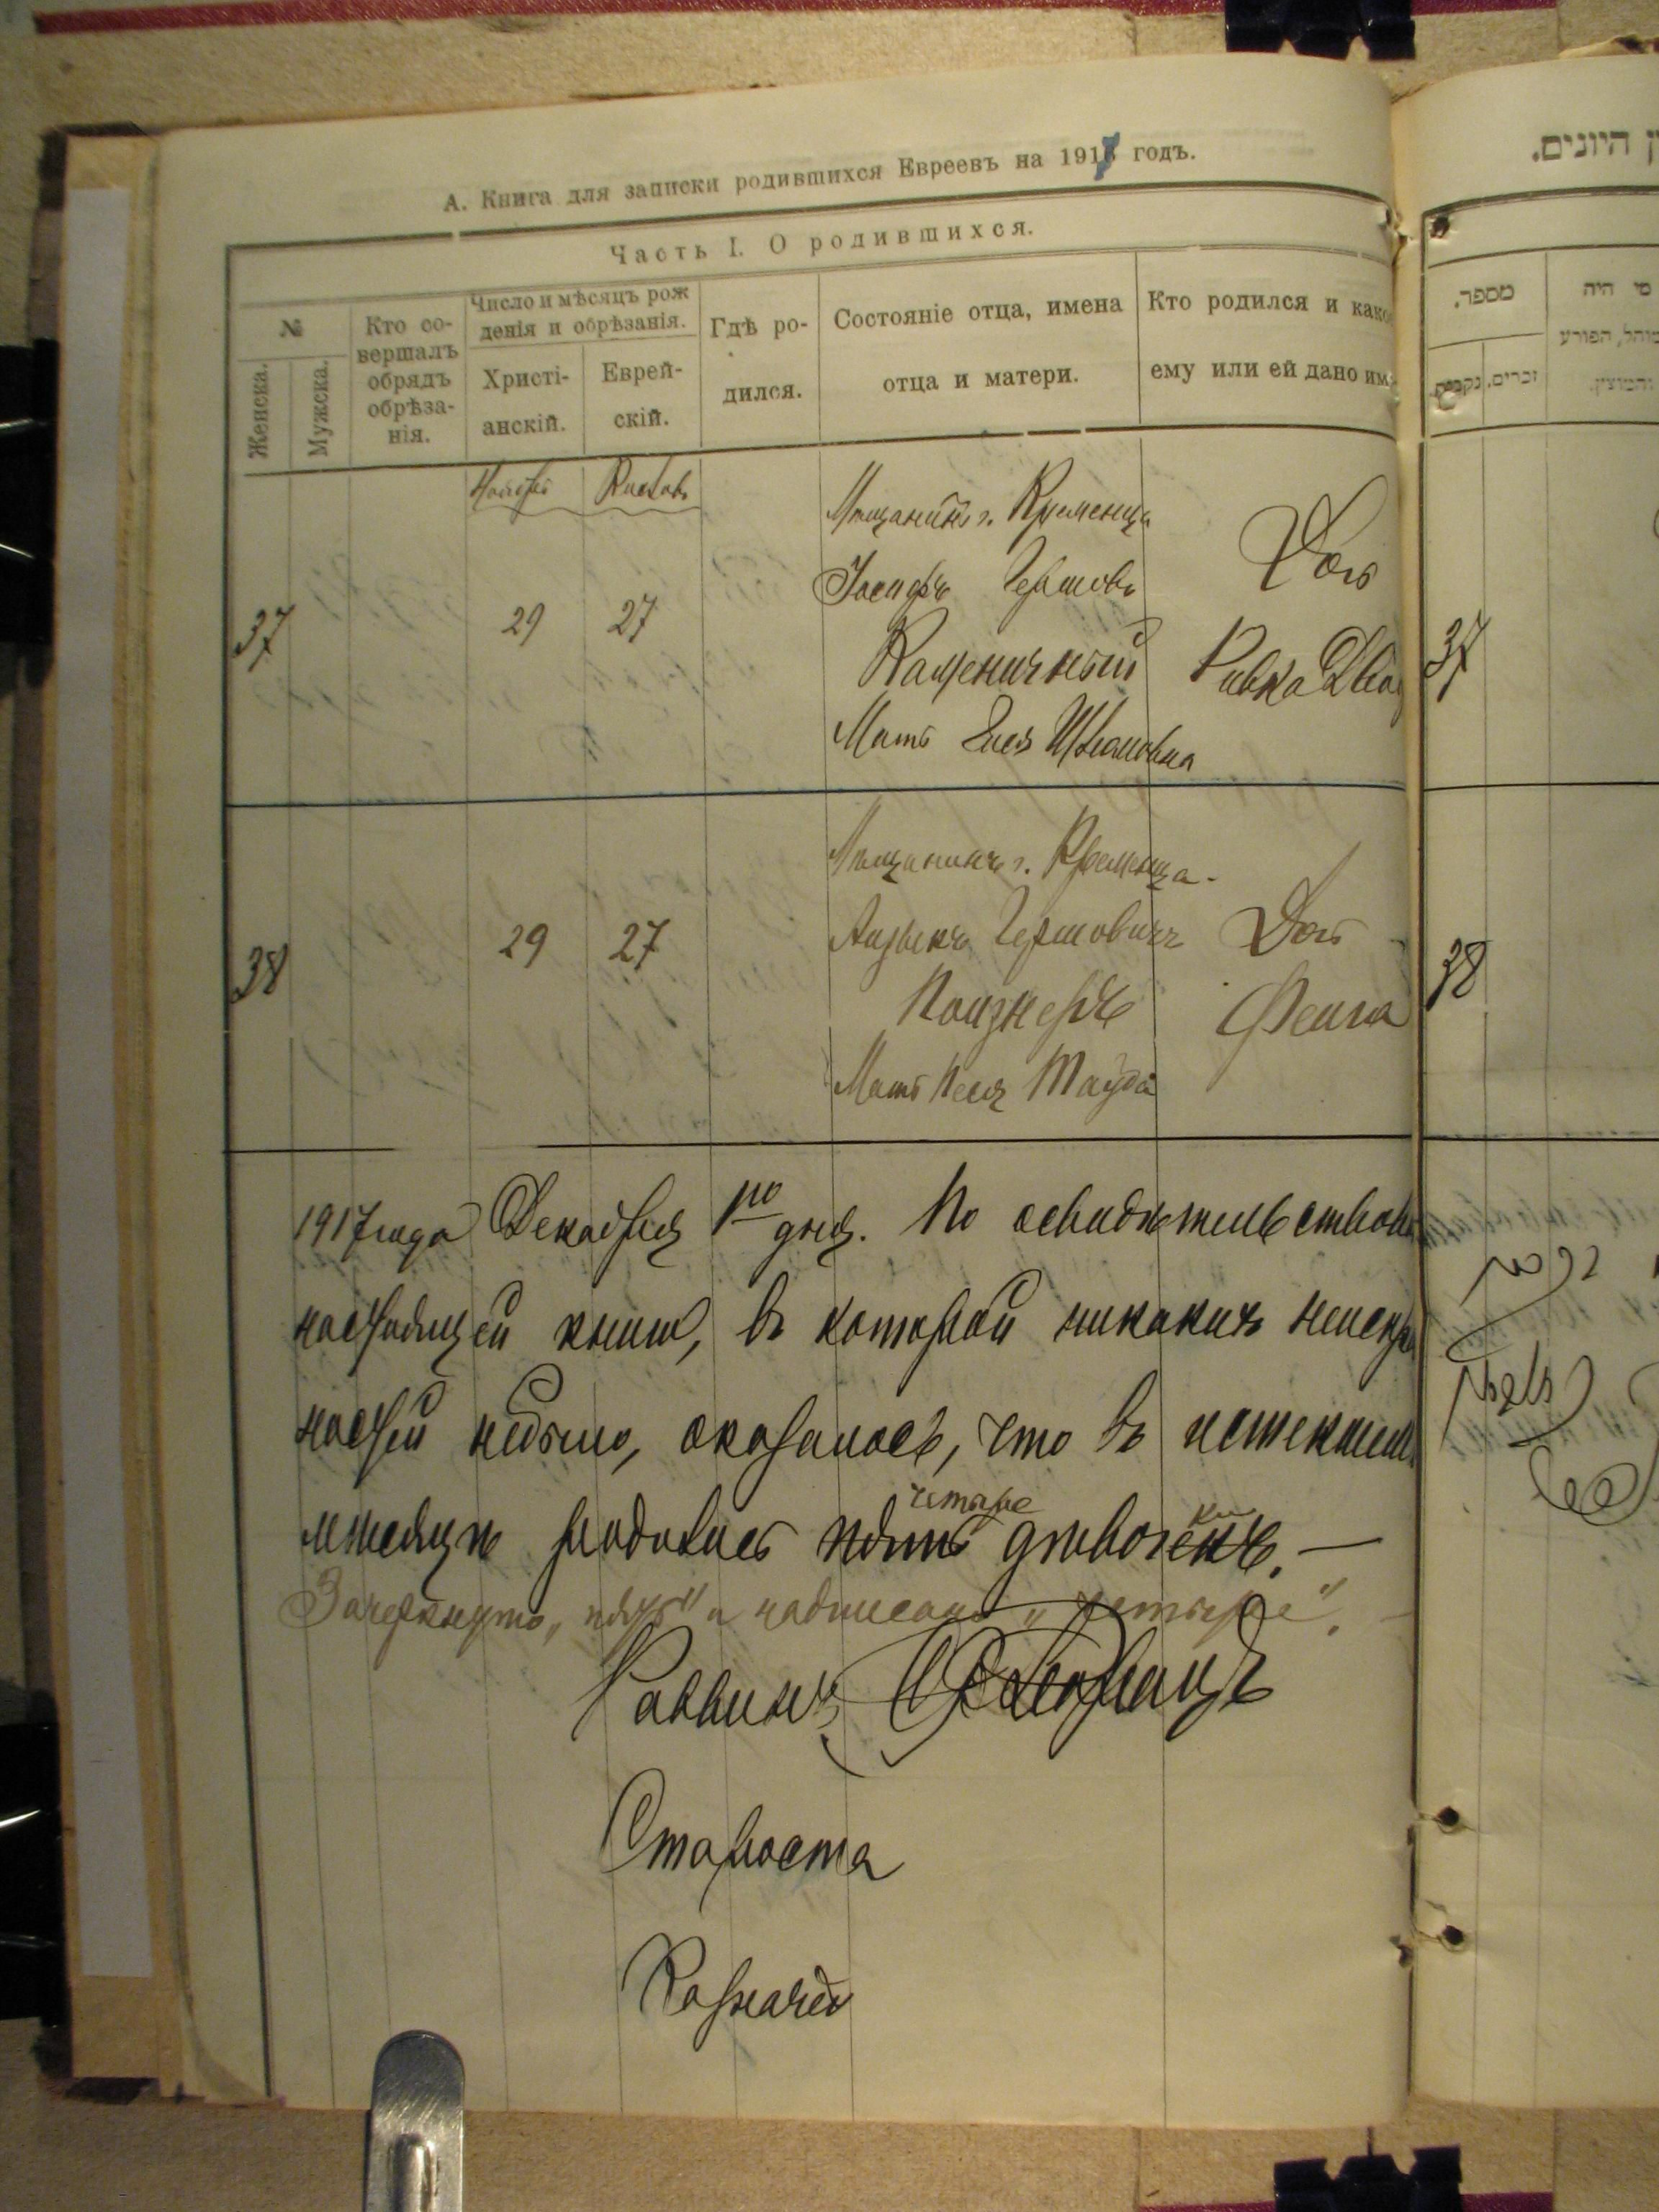 А. Книга для записки родившихся Евреевъ на 1917 годъ.
Часть I. О родившихся.
№
Женска.
Мужска.
Кто со-
вершалъ
обрядъ
обрѣза-
нія.
Число и мѣсяцъ рож
денія и обрѣзанія.
Христі-
анскій.
Еврей-
скій.
Гдѣ ро-
дился.
Состояніе отца, имена
отца и матери.
Кто родился и како
ему или ей дано им
Ноября Кислевъ
37 29 27
Мѣщанинъ г. Кременца
Іосифъ Гершовъ
Каменичный
Мать
Дочь
Ривка Двой
38 29 27
Мѣщанинъ г. Кременца
Айзыкъ Гершовичъ
Поизнеръ
Мать Песя Тауба
Дочь
Фейга
1917 года Декабря 1го дня. По освидѣтельствован
настоящей книги, въ которой никакихъ неиспра
ностей небыло, оказалось, что въ истекшемъ
четыре ки
мѣсяцѣ родилось пять дѣвочекъ. —
Зачеркнуто „пять" и надписано „четыре". —
Раввинъ
Староста
Казначей
ן היונים.
מספר.
זכרים.
נקבות.
מי היה
מוהל, הפורע
והמוצץ.
37
38